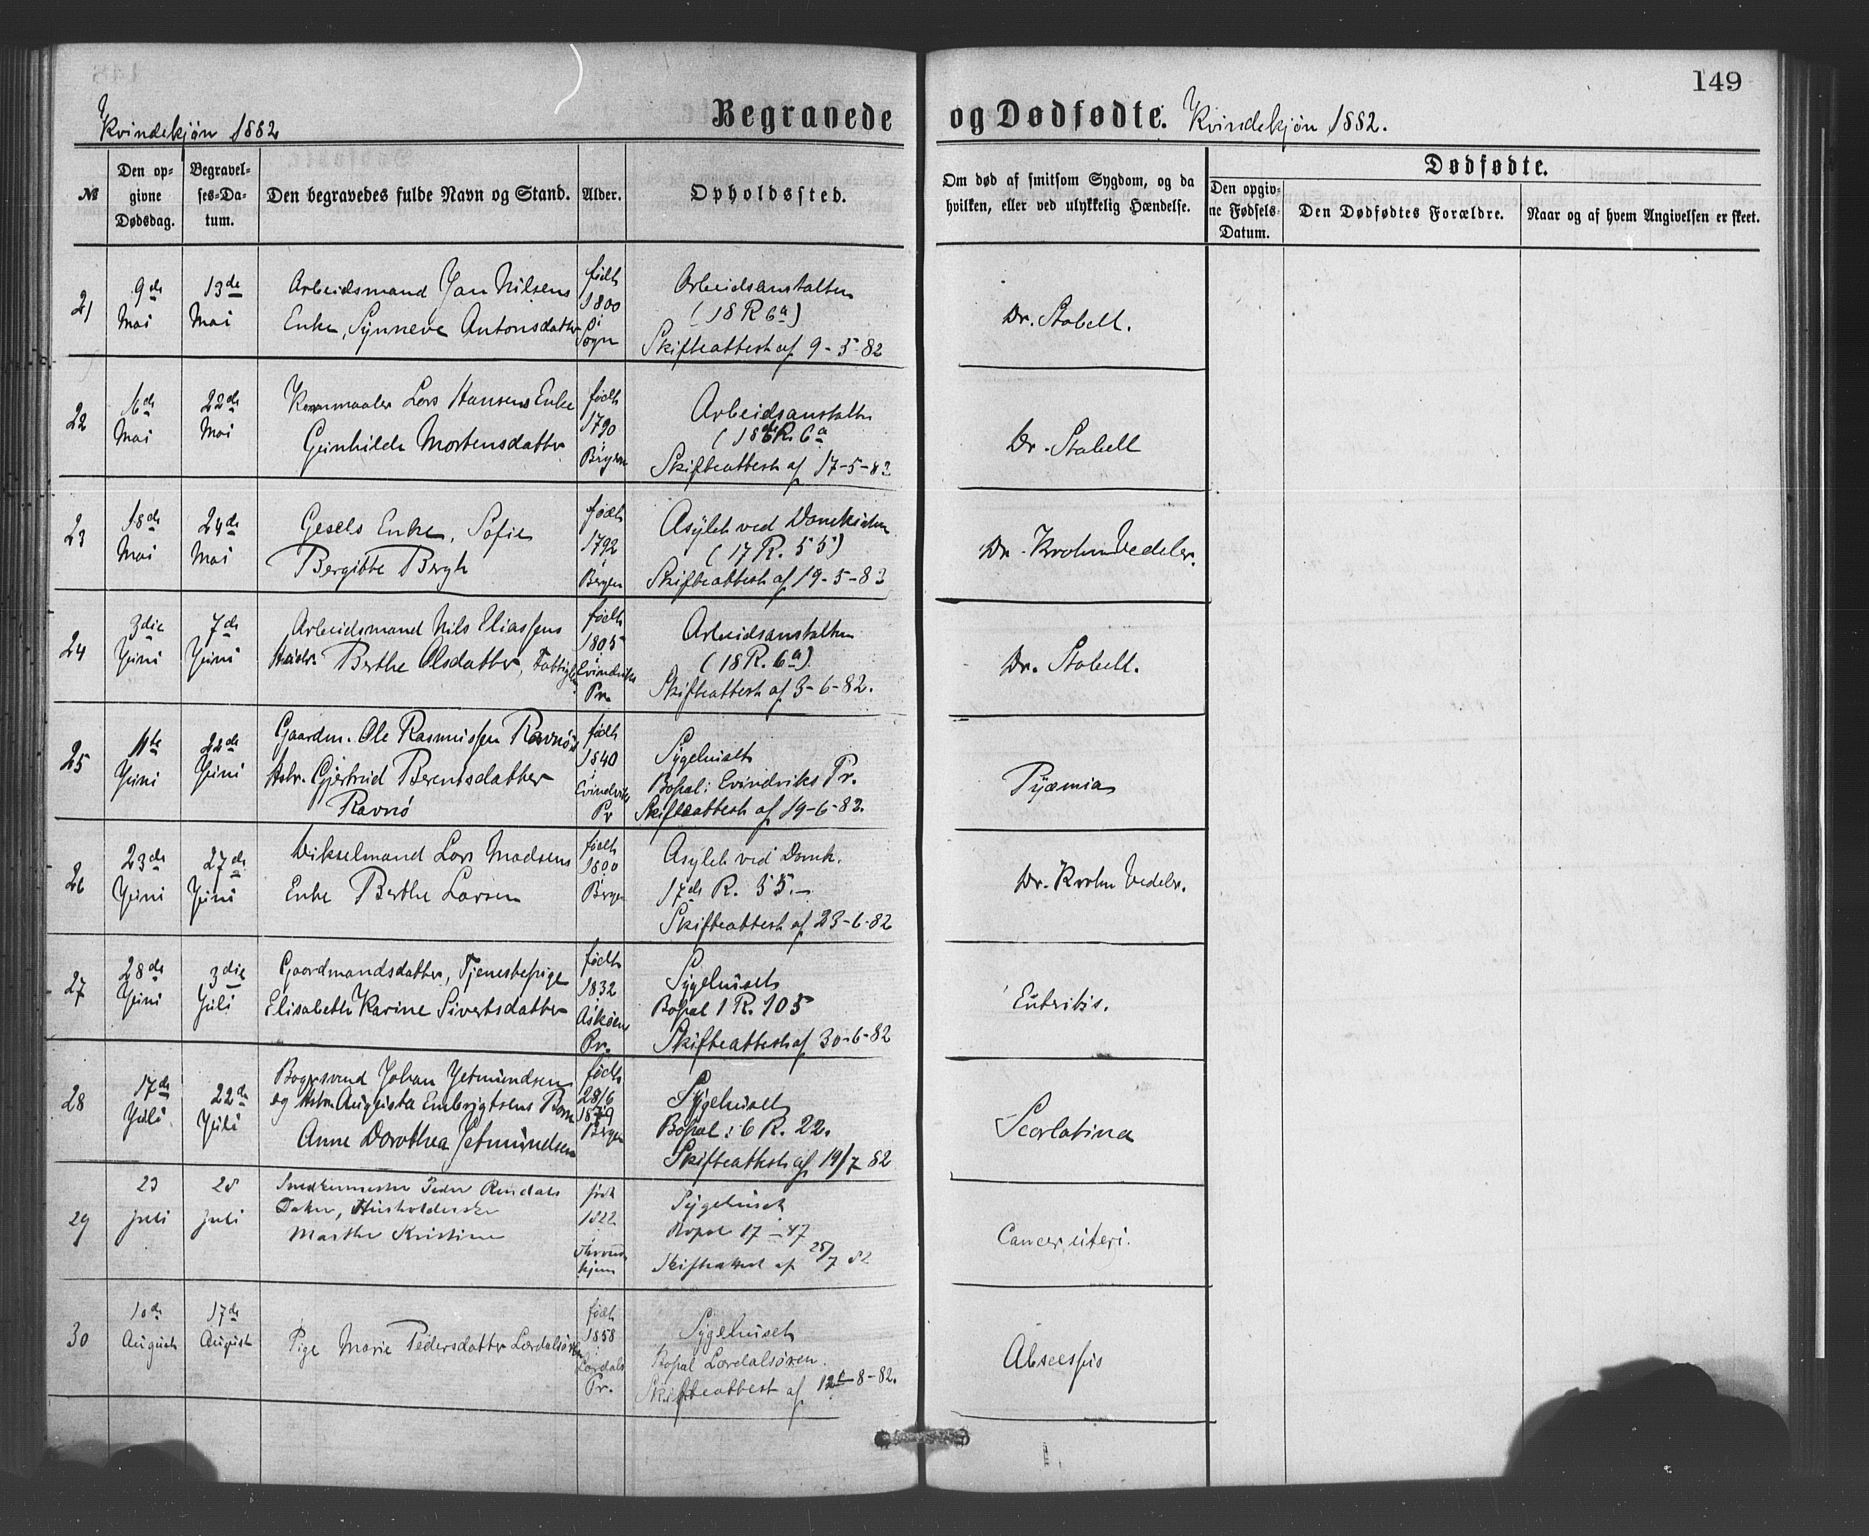 149
Kvindekjøn 1882
Begravede og Dødfødte. Kvindekjøn 1882.
№
Den op-
givne
Dødsdag.
Begravel-
ses-Da-
tum.
Den begravedes fulde Navn og Stand.
Alder.
Opholdssted.
Om død af smitsom Sygdom, og da
hvilken, eller ved ulykkelig Hændelse.
Dødfødte.
Den opgiv-
ne Fødsels-
Datum.
Den Dødfødtes Forældre.
Naar og af hvem Angivelsen er skeet.
21
9de
Mai
13de
Mai
Arbeidsmand Jan Nilsens
Enke, Synneve Antonsdatter
født
1800
i
Sogn
Arbeidsanstalten
(18 R 6a)
Skifteattest af 9-5-82
Dr. Stabell.
22
Mai
22de
Mai
Kornmaaler Lars Hansens Enke
Gunhilde Mortensdatter
født
1790
i
Bergen
Arbeidsanstalten
(18de R. 6a
Skifteattest af 17-5-82
Dr. Stabell
23
18de
Mai
24de
Mai
Gesels Enke, Sofie
Bergitte Bergh
født
1792
i
Bergen
Asylet ved Domkirken
(17 R. 55)
Skifteattest af 19-5-82
Dr. Krohn Vedeler.
24
3die
Juni
7de
Juni
Arbeidsmand Nils Eliassens
Berthe Olsdatter, Fattiglem
født
1805
Evindviks
Pr.
Arbeidsanstalten
(18 R. 6a)
Skifteattest af 3-6-82.
Dr. Stabell.
25
11te
Juni
22de
Juni
Gaardm. Ole Rasmussen Ravnøs
Hstr. Gjertrud Berentsdatter
Ravnø
født
1840
i
Evindvik
Pr
Sygehuset
Bopal i Evindviks Pr.
Skifteattest af 19-6-82.
Pyæmia
26
23de
Juni
27de
Juni
Vikselmand Lars Madsens
Enke Berthe Larsen
født
1800
i
Bergen
Asylet ved Domk.
17de R. 55.-
Skifteattest af 23-6-82
Dr. Krohn Vedeler.
27
28de
Juni
3die
Juli
Gaardmandsdatter, Tjenestepige
Elisabeth Karine Sivertsdatter
født
1832
i
Askøens
Pr.
Sygehuset
Bopal 1 R. 105
Skifteattest af 30-6-82
Entritis.
28
17de
Juli
22de
Juli
Bogersvend Johan Jetmundsen
og Hstr. Augusta Embrigtsens Barn
Anne Dorothea Jetmundsen
født
28/6
1879
Bergen
Sygehuset
Bopal i 6 R. 22.
Skifteattest af 19/7 82
Scarlatina
29
23
Juli
28
Juli
Smedemester Peder Rendals
Datter, Husholderske
Marthe Kristine
født
1822
i
Throndhjem
Sygehuset
Bopal 17 - 47
Skifteattest af 25/7 82
Cancer uteri.
30
10de
August
17de
August
Pige Marie Pedersdatter Lærdalsøren
født
1858
i
Lærdals
Pr.
Sygehuset
Bopal Lærdalsøren.
Skifteattest af 12te-8-82.
Abscessus